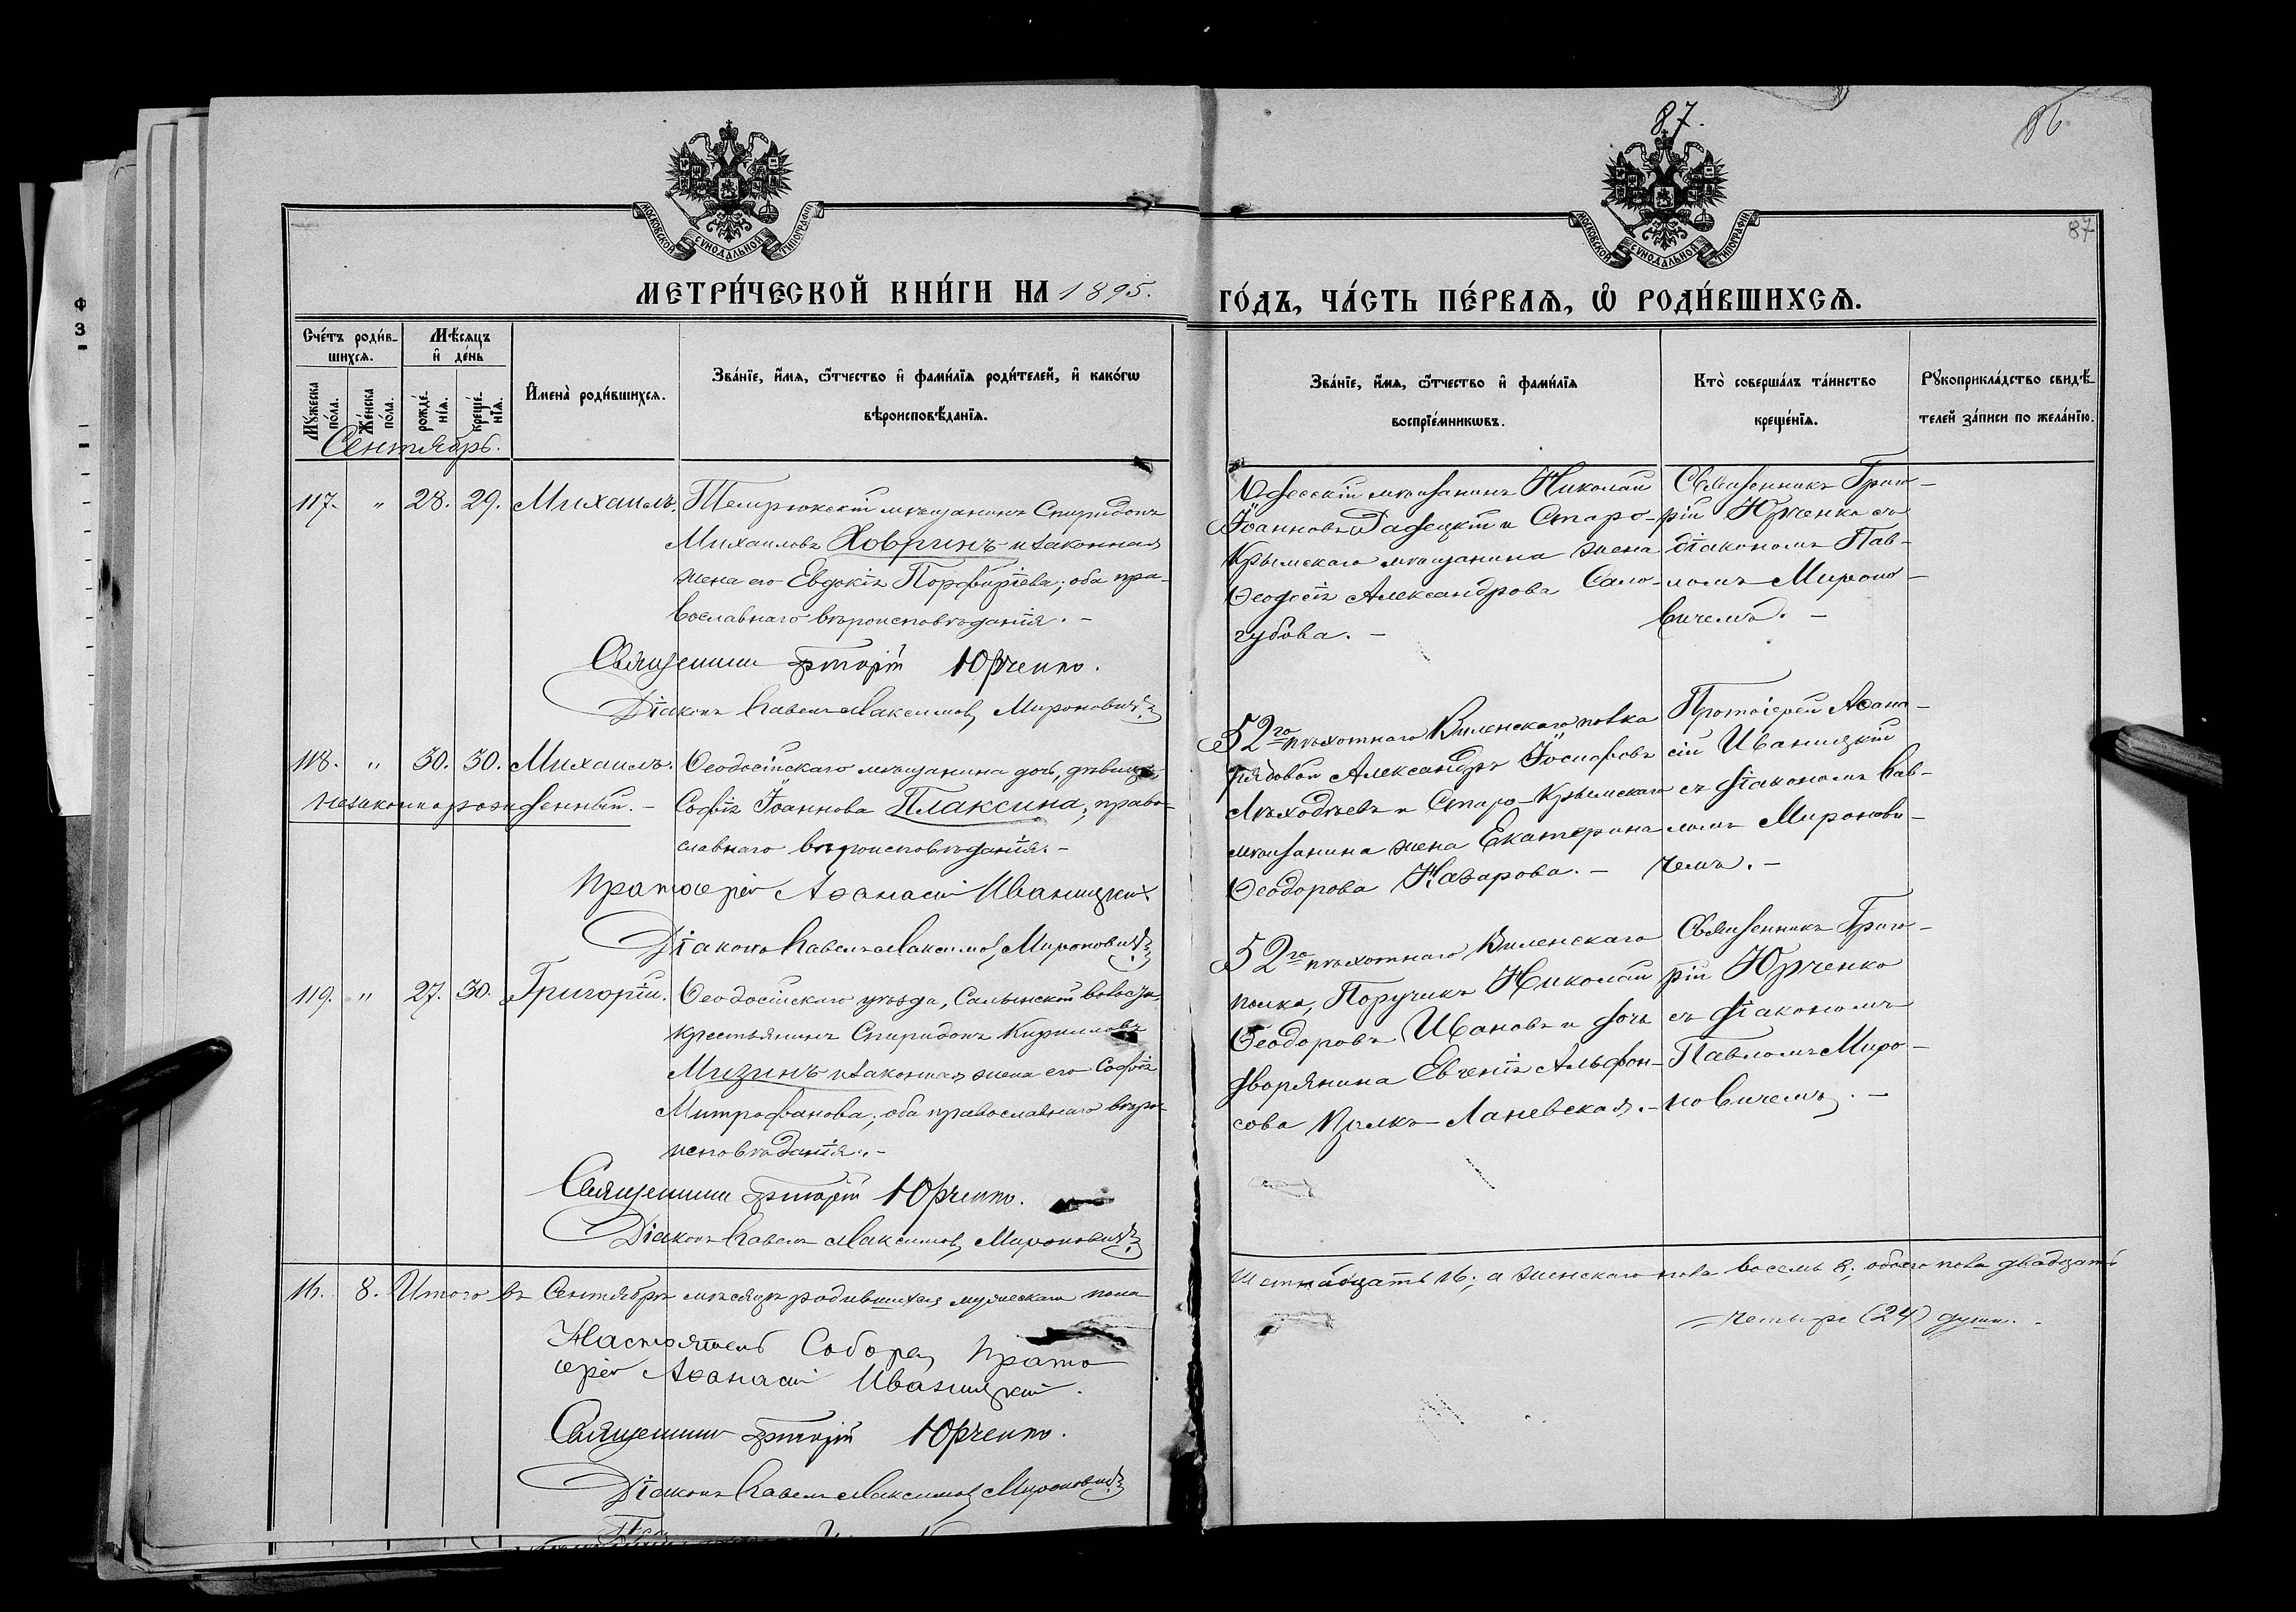 87.
86
87
МОСКОВСКОЙ СѴНОДАЛЬНОЙ ТИПОГРАФІИ
МОСКОВСКОЙ СѴНОДАЛЬНОЙ ТИПОГРАФІИ
МЕТРИ́ЧЕСКОЙ КНИ́ГИ НА 1895.
ГО́ДЪ, ЧА́СТЬ ПЕ́РВАѦ, Ѡ҆ РОДИ́ВШИХСѦ.
Сче́тъ роди́в-
шихсѧ.
Мѣ́сѧцъ
и҆ де́нь
Мꙋ́жеска по́ла.
Же́нска по́ла.
рожде́-
нїѧ.
креще́-
нїѧ.
И҆мена̀ роди́вшихсѧ.
Зва́нїе, и҆́мѧ, ѻ҆́тчество и҆ фами́лїѧ роди́телей, и҆ како́гѡ
вѣроисповѣ́данїѧ.
Зва́нїе, и҆́мѧ, ѻ҆́тчество и҆ фами́лїѧ
воспрїе́мникѡвъ.
Кто̀ соверша́лъ та́инство
креще́нїѧ.
Рꙋкоприкла́дство свидѣ́-
телей за́писи по жела́нїю.
Сентябрь.
117. " 28. 29. Михаилъ.
Темрюкскій мѣщанинъ Спиридонъ
Михаиловъ Ховринъ и законная
жена его Евдокія Порфиріева; оба пра-
вославнаго вѣроисповѣданія. -
Священникъ Григорій Юрченко.
Діаконъ Павелъ Максимовъ Мироновичъ
Одесскій мѣщанинъ Николай
Іоанновъ Садецкій и Старо-
Крымскаго мѣщанина жена
Ѳеодосія Александрова Само-
губова. -
Священникъ Григо-
рій Юрченко съ
діакономъ Пав-
ломъ Мироно-
вичемъ. -
118. " 30. 30. Михаилъ.
незаконнорожденный. -
Ѳеодосійскаго мѣщанина дочь, дѣвица,
Софія Іоаннова Плаксина, право-
славнаго вѣроисповѣданія. -
Протоіерей Аѳанасій Иваницкій
Діаконъ Павелъ Максимовъ Мироновичъ
52го пѣхотнаго Виленскаго полка
рядовой Александръ Іосифовъ
Мѣходѣевъ и Старо-Крымскаго
мѣщанина жена Екатерина
Ѳеодорова Назарова. -
Протоіерей Аѳана-
сій Иваницкій
съ діакономъ Пав-
ломъ Миронови-
чемъ. -
119. " 27. 30. Григорій.
Ѳеодосійскаго уѣзда, Салынской волости,
крестьянинъ Спиридонъ Кирилловъ
Мизинъ и законная жена его Софія
Митрофанова; оба православнаго вѣро-
исповѣданія. -
Священникъ Григорій Юрченко.
Діаконъ Павелъ Максимовъ Мироновичъ
52го пѣхотнаго Виленскаго
полка, Поручикъ Николай
Ѳеодоровъ Ивановъ и дочь
дворянина Евгенія Альфон-
сова Цялкъ-Ланевская. -
Священникъ Григо-
рій Юрченко
съ діакономъ
Павломъ Миро-
новичемъ. -
16. 8. Итого въ Сентябрѣ мѣсяцѣ родившихся мужескаго пола
шестнадцать 16; а женскаго пола восемь 8; обоего пола двадцать
четыре (24) души. -
Настоятель Собора, Прото-
іерей Аѳанасій Иваницкій.
Священникъ Григорій Юрченко.
Діаконъ Павелъ Максимовъ Мироновичъ